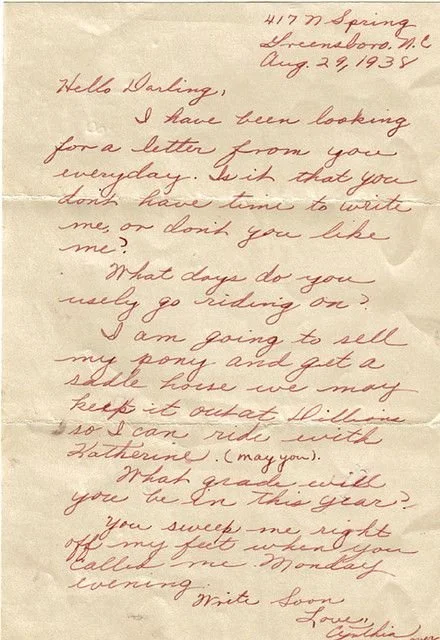 417 N Spring
Greensboro. N.C
Aug. 29, 1938
Hello Darling,
I have been looking
for a letter from you
everyday. Is it that you
dont have time to write
me, or don't you like
me?
What days do you
usely go riding on?
I am going to sell
my pony and get a
sadle horse we may
keep it out at Dillions
so I can ride with
Katherine. (may you).
What grade will
you be in this year?
You sweep me right
off my feet when you
called me Monday
evening.
Write Soon
Love,
Cynthia